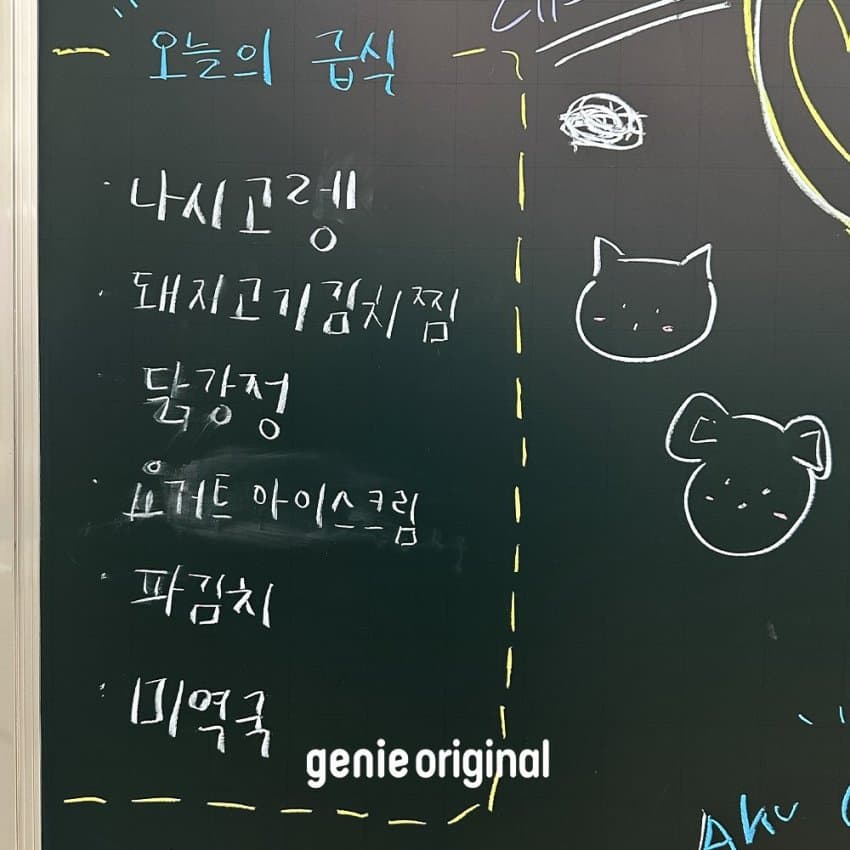 오늘의 급식
· 나시고렝
· 돼지고기김치찜
· 닭강정
· 요거트 아이스크림
· 파김치
· 미역국
genie original